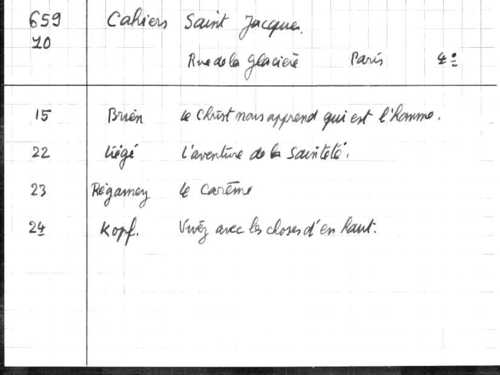 659 Cahiers Saint Jacques.
10 Rue de la Glacière Paris 4º
15 Brien le Christ nous apprend qui est l'homme.
22 Liégé l'aventure de la Sainteté.
23 Régamey le carême
24 Kopf. Vivez avec les choses d'en haut.